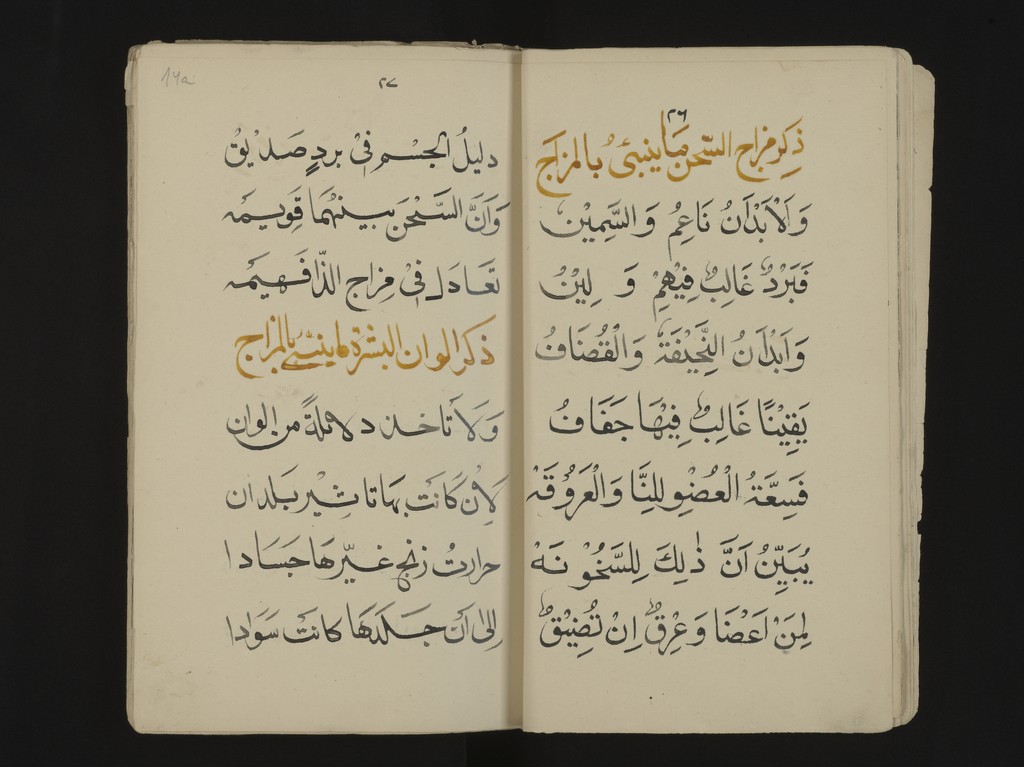 ٢٦
ذكر مزاج السّحن مّا ينبئ بالمزاج
وَالْابْدَانُ نَاعِمُ وَالسَّمِيْنُ
فَبَرْدٌ غَالِبٌ فِيْهِمْ وَ لِيْنُ
وَاَبْدَانُ النَّحِيْفَةِ وَالْقُصَافُ
يَقِيْنًا غَالِبٌ فِيْهَا جَفَافُ
فَسِعَّةُ الْعُضْوِ لِلنَّا وَالْعَرُوْقَهْ
يُبَيِّنُ اَنَّ ذٰلِكَ لِلسَّخُوْنَهْ
لِمَنْ اَعْضَا وَعِرْقٌ اِنْ تُضِيْقٌ
14a
٢٧
دليلُ الجسْم فِىْ بردٍ صَديْقْ
وَاَنَّ السَّحْنَ بينهُمَا قَوِيمَه
تَعَادَل فِىْ مِزاج الذّا فَهيمَه
ذكر الوان البشرة لما ينبئ بالمزاج
وَلَا تاخذ دلائلةً من الوان
لِاَنْ كَانَت بهَا تاثيْر بَلدان
حرارتُ زنج غيّرهَا جسَادا
اِلىٰ اَن جلدهَا كانتْ سَوَادا